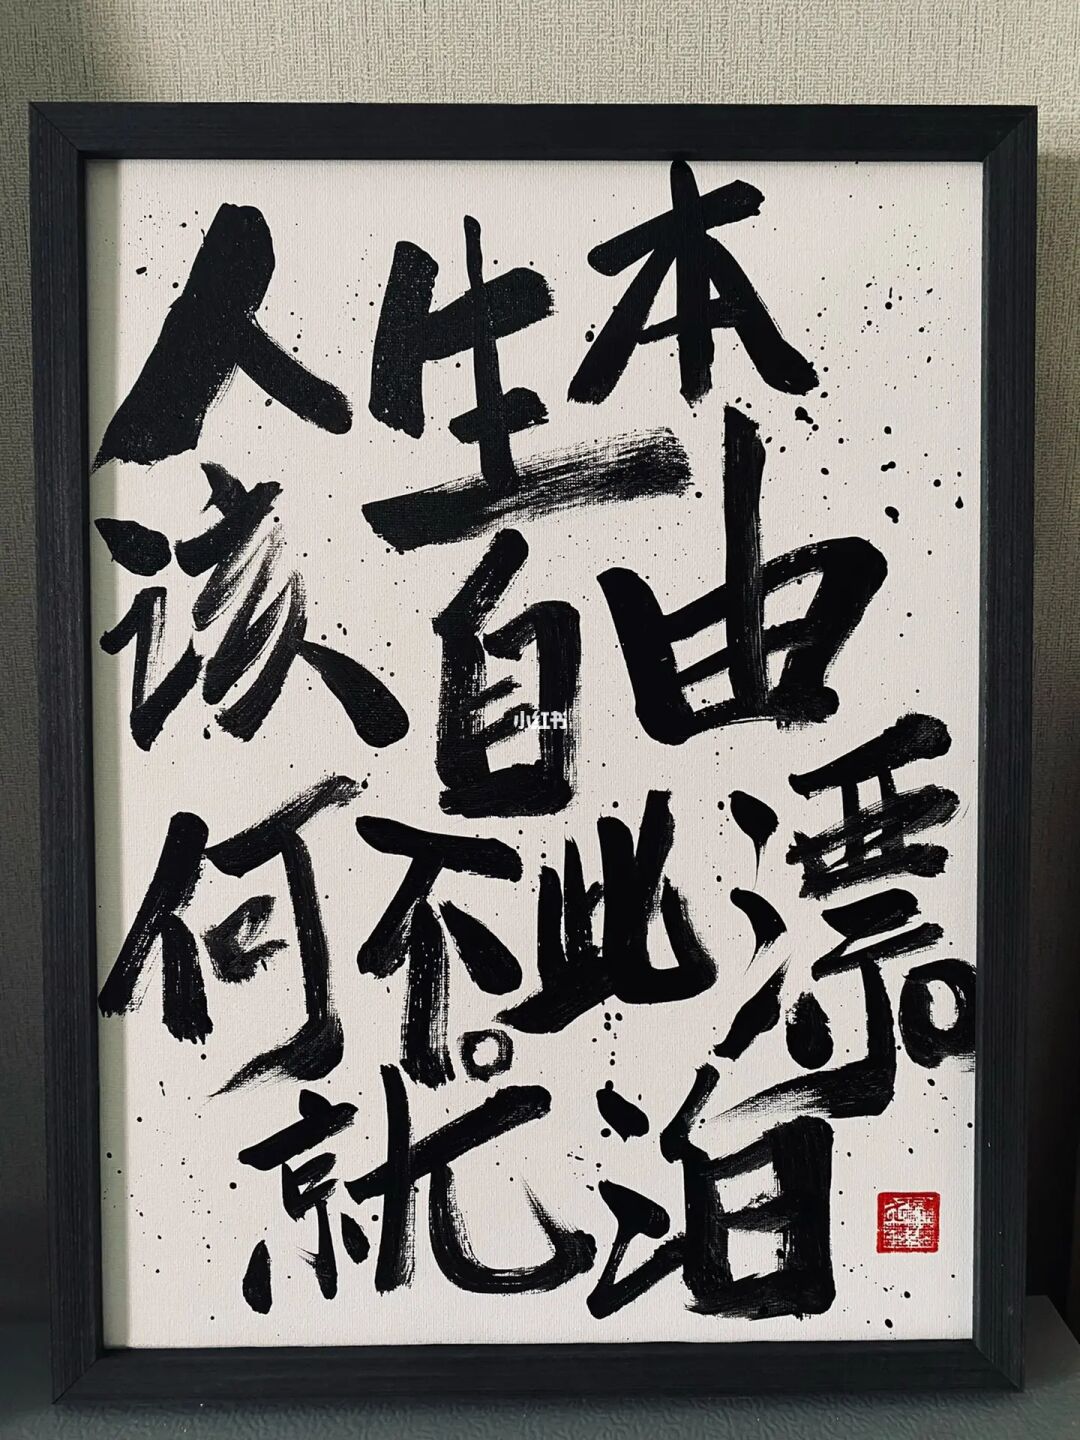 人生本
该自由
小红书
何不。此漂。
就泊